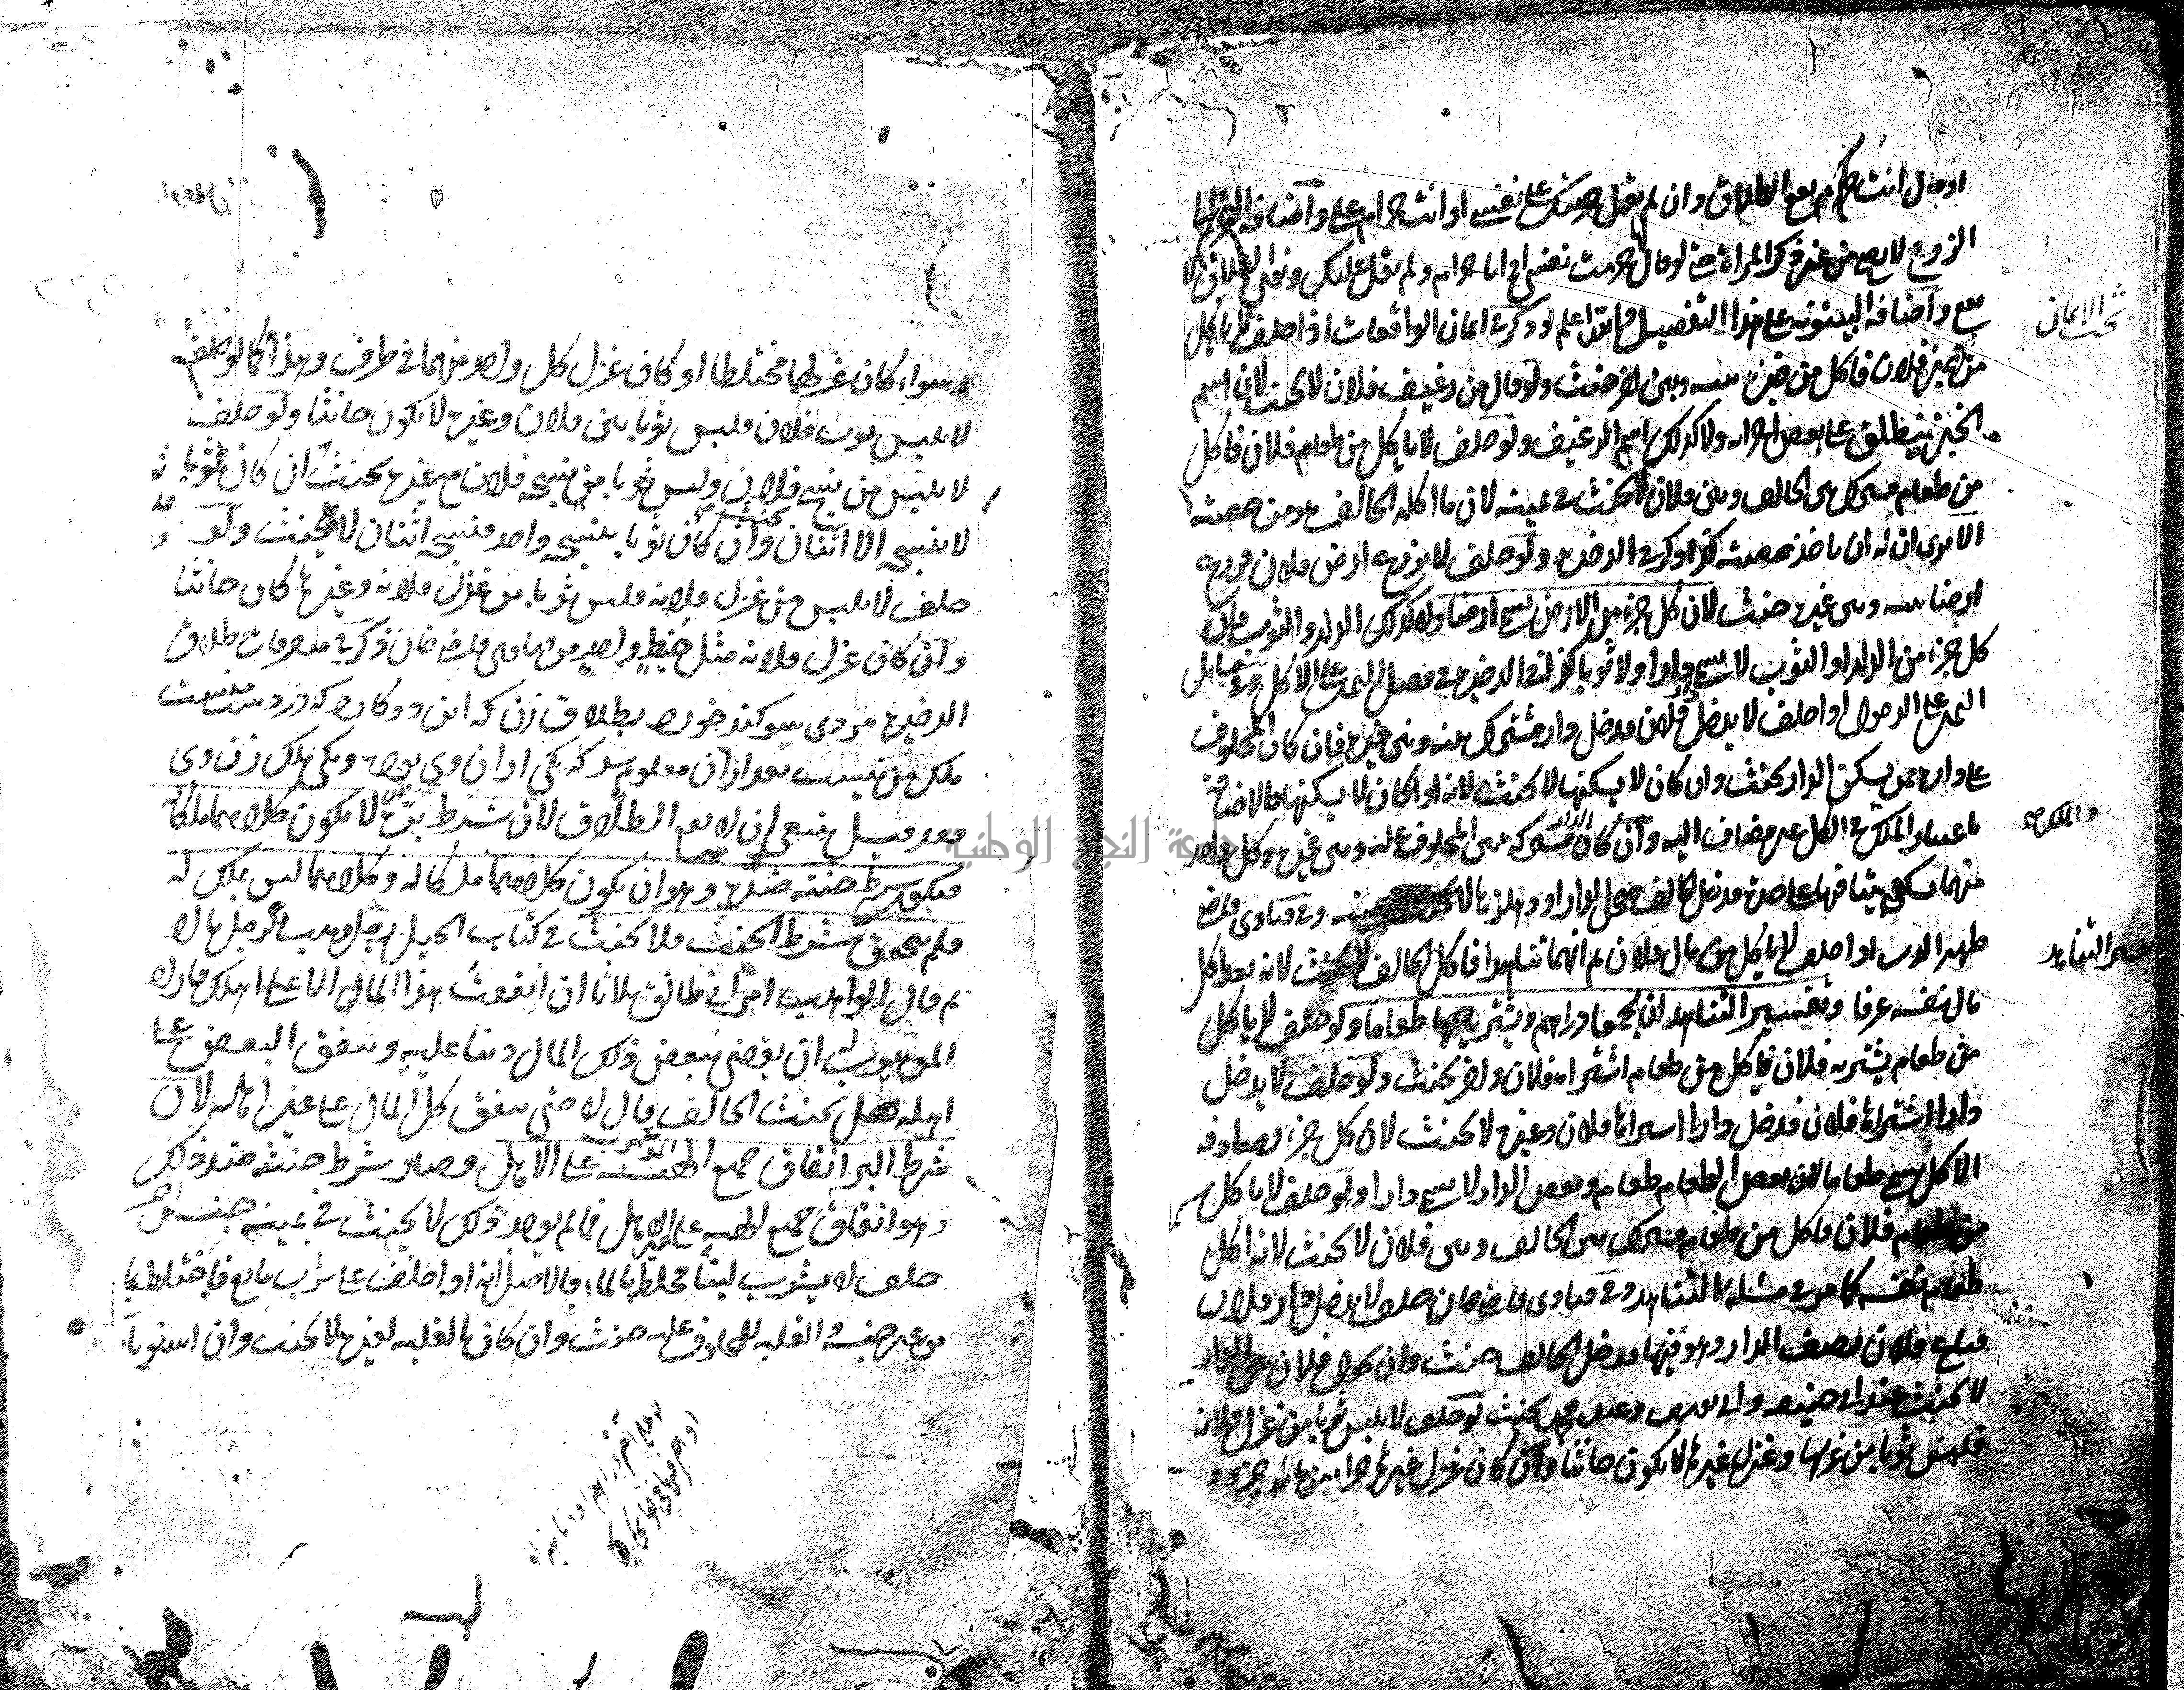 او قال انت حرام يقع الطلاق وان لم يقل حرمتك على نفسي او انت حرام على واضافة الحرمة الى
الزوج لا يصح من غير ذكر المراة حتى لو قال حرمت نفسي او انا حرام ولم يقل عليك ونوى الطلاق لا
يقع واضافة البينونة على هذا التفصيل والله اعلم وذكر في ايمان الواقعات اذا حلف لا ياكل
من خبز فلان فاكل من خبز بينه وبين اخر حنث ولو قال من رغيف فلان لا يحنث لان اسم
الخبز ينطلق على بعض اجزائه ولا كذلك اسم الرغيف ولو حلف لا ياكل من طعام فلان فاكل
من طعام مشترك بين الحالف وبين فلان لا يحنث في يمينه لان ما اكله الحالف هو من حصته
الا يرى ان له ان ياخذ حصته كذا ذكر في الذخيرة ولو حلف لا يزرع ارض فلان فزرع
ارضا بينه وبين غيره حنث لان كل جزء من الارض يسمى ارضا ولا كذلك الدار والثوب فان
كل جزء من الدار او الثوب لا يسمى دارا ولا ثوبا كذا في الذخيرة في فصل اليمين على الاكل وفي مسائل
اليمين على الدخول اذا حلف لا يدخل دار فلان فدخل دار مشتركة بينه وبين غيره فان كان المحلوف
على داره ممن يسكن الدار يحنث وان كان لا يسكنها لا يحنث لانه اذا كان لا يسكنها فالاضافة
باعتبار الملك في الكل غير مضاف اليه وان كان الدار مشتركة بين المحلوف عليه وبين غيره وكل واحد
منهما يسكن بيتا فيها على حدة فدخل الحالف صحن الدار او دهليزها لا يحنث وفي فتاوى قاضي
ظهير الدين اذا حلف لا ياكل من مال فلان ثم انهما تناهدا فاكل الحالف لا يحنث لانه يعد اكل
مال نفسه عرفا وتفسير التناهد ان يجمعا دراهم ويشتريا بها طعاما ولو حلف لا ياكل
من طعام يشتريه فلان فاكل من طعام اشتراه فلان واخر يحنث ولو حلف لا يدخل
دارا اشتراها فلان فدخل دارا اشتراها فلان وغيره لا يحنث لان كل جزء يصادفه
الاكل يسمى طعاما لان بعض الطعام طعام وبعض الدار لا يسمى دارا ولو حلف لا ياكل
من طعام فلان فاكل من طعام مشترك بين الحالف وبين فلان لا يحنث لانه اكل
طعام نفسه كما مر في مسئلة التناهد وفي فتاوى قاضي خان حلف لا يدخل دار فلان
فباع فلان نصف الدار وهو فيها فدخل الحالف حنث وان تحول فلان عن الدار
لا يحنث عند ابي حنيفة وابي يوسف وعند محمد يحنث لو حلف لا يلبس ثوبا من غزل فلانة
فلبس ثوبا من غزلها وغزل غيرها لا يكون حانثا وان كان غزل غيرها جزءا من مائة جزء و
تفسير التناهد
سواء كان غزلهما مختلطا او كان غزل كل واحد منهما في طرف وهذا كما لو حلف
لا يلبس ثوب فلان فلبس ثوبا بين فلان وغيره لا يكون حانثا ولو حلف
لا يلبس من نسج فلان ولبس ثوبا من نسجه فلان مع غيره يحنث ان كان ثوبا
لا ينسجه الا اثنان وان كان ثوبا ينسجه واحد فنسجه اثنان لا يحنث ولو
حلف لا يلبس من غزل فلانة فلبس ثوبا من غزل فلانة وغيرها كان حانثا
وان كان غزل فلانة مثل خيط واحد من قاضي خان ذكر في متفرقات طلاق
الذخيرة مردي سوكند خورد بطلاق زن كه اين دوكان كه در دست منست
ملك من نيست بعد از آن معلوم شد كه يكى از آن وى بود ويكى ملك زن وى
فقد قيل ينبغي ان لا يقع الطلاق لان شرط بره ان لا يكون كلاهما ملكا له
فيكون شرط حنثه ضده وهو ان يكون كلاهما ملكا له وكلاهما ليس بملك له
فلم يتحقق شرط الحنث فلا يحنث في كتاب الحيل رجل وهب لرجل مالا
ثم قال الواهب امراتي طالق ثلاثا ان انفقت هذا المال الا على اهلك فاراد
الموهوب له ان يقضي ببعض ذلك المال دينا عليه وينفق البعض على
اهله هل يحنث الحالف قال لا حتى ينفق كل المال على غير اهله لان
شرط البر انفاق جميع الهبة على الاهل وصار شرط حنثه ضد ذلك
وهو انفاق جميع الهبة على غير الاهل فما لم يوجد ذلك لا يحنث في يمينه
حلف لا يشرب لبنا مخلطه بالماء فالاصل انه اذا حلف على شرب مايع فاختلط بما
من غير جنسه والغلبة للمحلوف عليه حنث وان كان الغلبة لغيره لا يحنث وان استويا